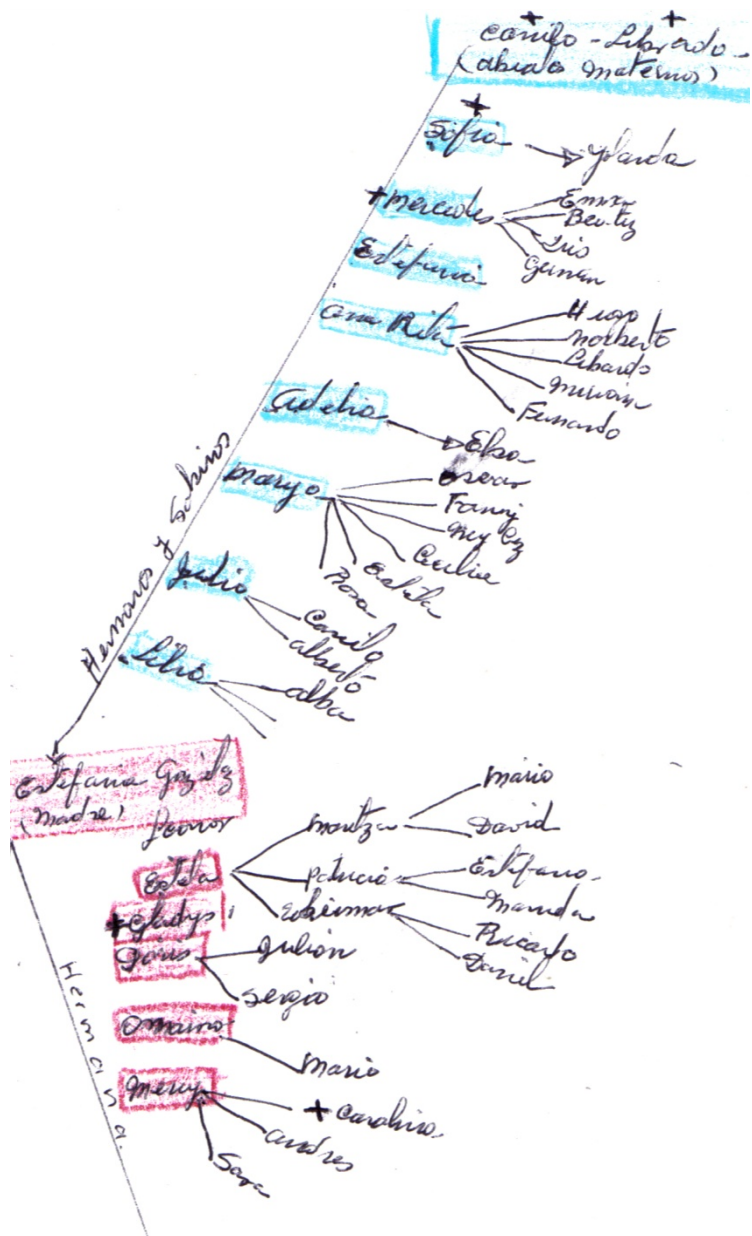 Camilo - Librado -
(abuelos maternos)
Sofia
Yolanda
Mercedes
Emma
Beatriz
Iris
German
Estefania
Ana Rita
Hugo
Norberto
Libardo
Miriam
Fernando
Adelia
Elsa
Oscar
Fanny
Cecilia
Estela
Rosa
Maryo
Julio
Camilo
alberto
Lilia
alba
Hermanos y Sobrinos
Estefania
(Madre)
Leonor
Estela
Maritza
Mario
David
Patricia
Estefania
Gladys
Ricardo
Daniel
Doris
Julian
Sergio
Omaira
Mario
Mercy
Carolina
andres
Sara
Hermana.